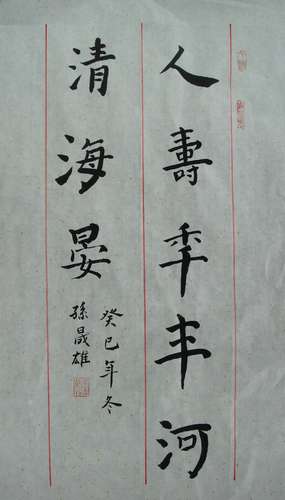 人壽年丰河
清海晏
癸巳年冬
孫晟雄